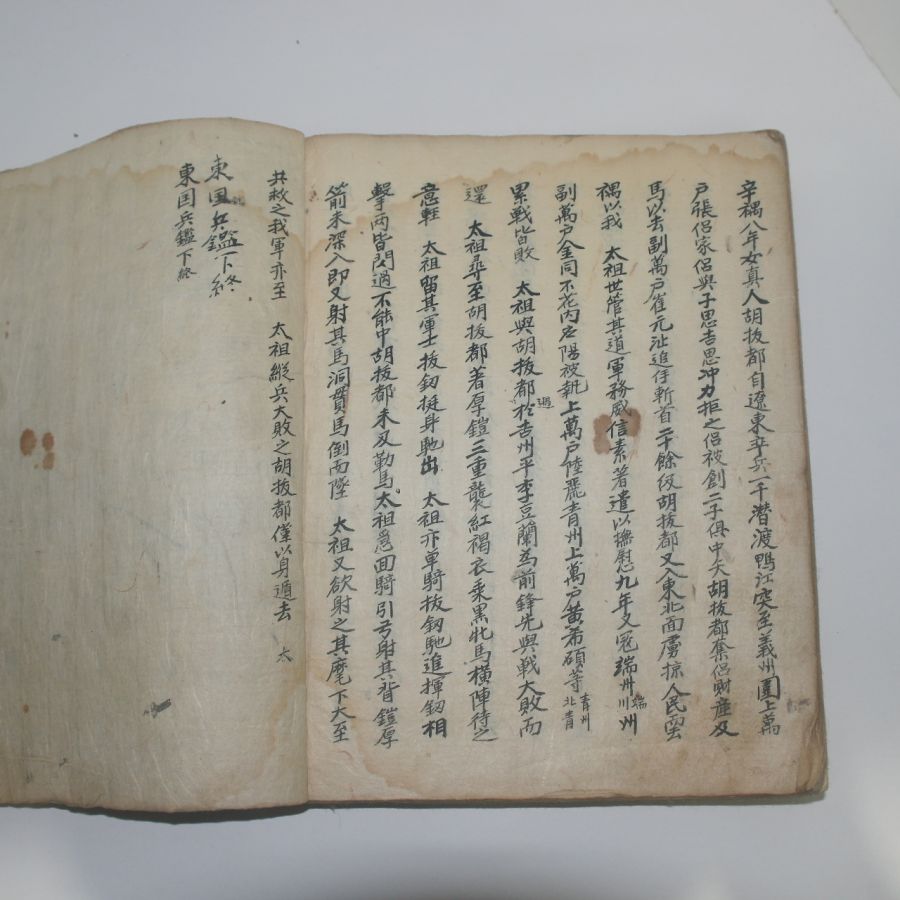 辛禑八年女真人胡拔都自遼東率兵一千潜渡鴨江突至義州圍上萬
戶張侶家侶與子思吉思冲力拒之侶被創二子俱中矢胡拔都奪侶財産及
馬以去副萬戶崔元沚追仔斬首二十餘級胡拔都又入東北面虜掠人民而
禑以我 太祖世管其道軍務威信素著遣以撫慰九年又冦端州端州川
副萬戶金同不花内応陽被執上萬戶陸麗青州上萬戶黄希碩等青州北青
累戰皆敗 太祖與胡拔都遇於吉州平李豆蘭為前鋒先與戰大敗而
還 太祖尋至胡拔都著厚鎧三重襲紅褐衣乘黒牝馬橫陣待之
意輕 太祖留其軍士拔釰挺身馳出 太祖亦单騎拔釰馳進揮釰相
擊两皆閃過不能中胡拔都未及勒馬太祖急回騎引弓射其背鎧厚
箭未深入即又射其馬洞貫馬倒而墜 太祖又欲射之其麾下大至
共救之我軍亦至 太祖縱兵大敗之胡拔都僅以身遁去 太
東国兵鑑下終
東国兵鑑下終